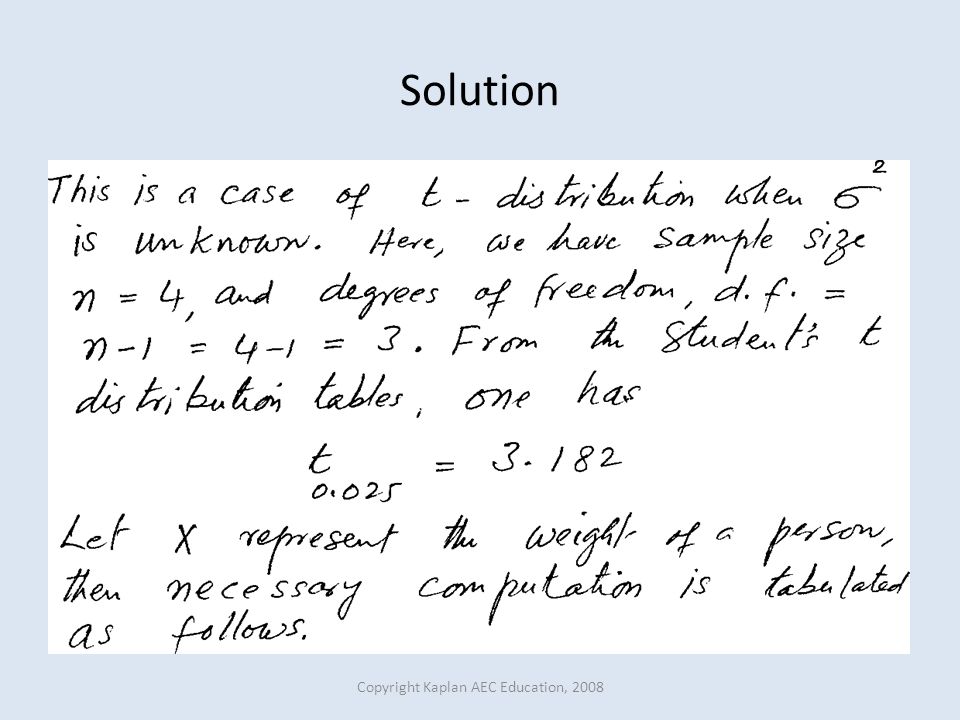 Solution
This is a case of t - distribution when σ²
is unknown. Here, we have sample size
n = 4, and degrees of freedom, d.f. =
n-1 = 4-1 = 3. From the Student's t
distribution tables, one has
t0.025 = 3.182
Let X represent the weight of a person,
then necessary computation is tabulated
as follows.
Copyright Kaplan AEC Education, 2008